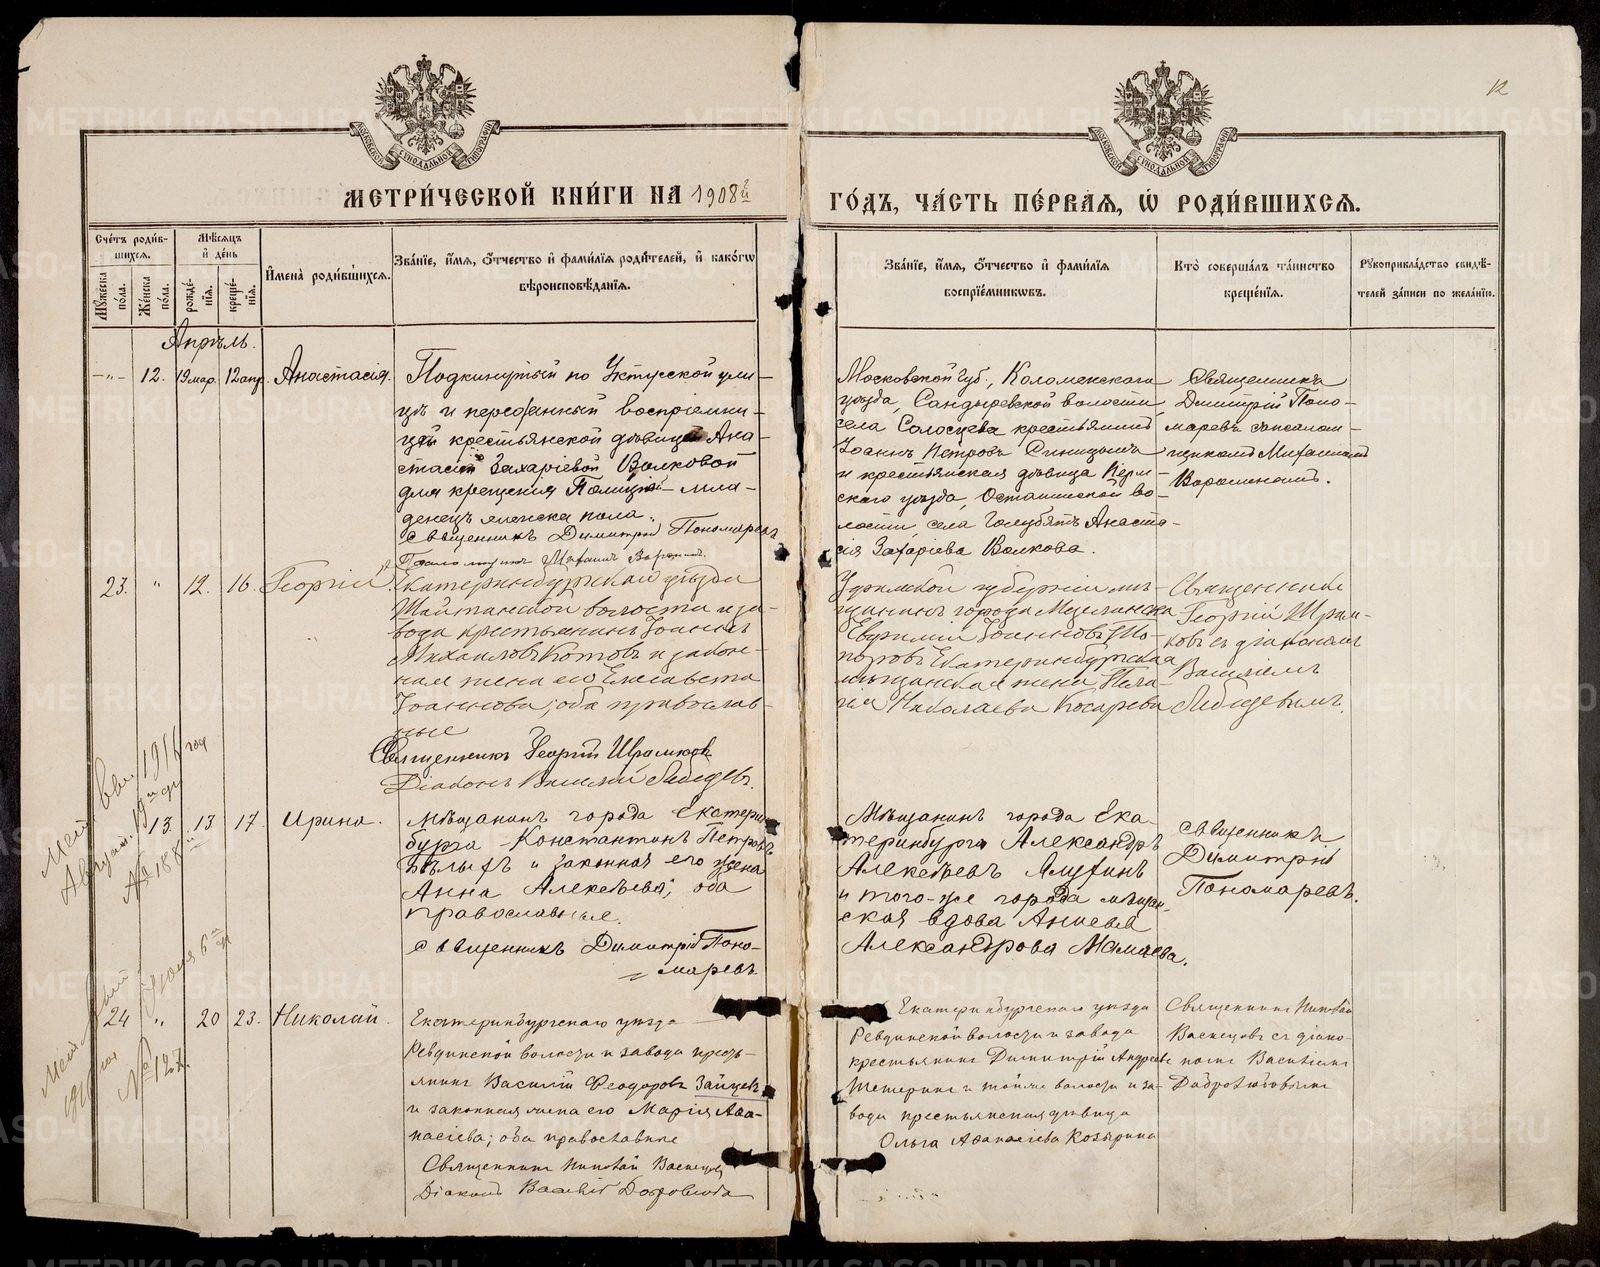 12
МОСКОВСКОЙ СѴНОДАЛЬНОЙ ТИПОГРАФІИ
МОСКОВСКОЙ СѴНОДАЛЬНОЙ ТИПОГРАФІИ
МЕТРИ́ЧЕСКОЙ КНИ́ГИ НА 1908й
ГО́ДЪ, ЧА́СТЬ ПЕ́РВАЯ, Ѡ҆ РОДИ́ВШИХСЯ.
Сче́тъ роди́в-
шихся.
Мѣ́сяцъ
и҆ де́нь
Мꙋ́жеска по́ла.
Же́нска по́ла.
рожде́-нїя.
креще́-нїя.
И҆мена̀ роди́вшихся.
Зва́нїе, и҆́мя, ѻ҆́тчество и҆ фами́лїя роди́телей, и҆ како́гѡ
вѣроисповѣ́данїя.
Зва́нїе, и҆́мя, ѻ҆́тчество и҆ фами́лїя
воспрїе́мникѡвъ.
Кто̀ соверша́лъ та́инство
креще́нїя.
Рꙋкоприкла́дство свидѣ́-
телей за́писи по жела́нїю.
Апрѣль.
-"- 12. 19 мар. 12 апр. Анастасія.
Подкинутый по Уктусской ули-
цѣ и переданный воспріемни-
цѣй крестьянской дѣвицей Ана-
стасіей Захаріевой Волковой
для крещенія Полиціей мла-
денецъ женска пола.
Священникъ Димитрій Пономаревъ
Псаломщикъ Михаилъ
Московской губ., Коломенскаго
уѣзда, Сандыревской волости
села крестьянинъ
Іоаннъ Петровъ Синицынъ
и крестьянская дѣвица Перм-
скаго уѣзда, волости,
села Голубятъ Анаста-
сія Захаріева Волкова.
Священникъ
Димитрій Поно-
маревъ съ псалом-
щикомъ Михаиломъ
23. " 12. 16. Георгій.
Екатеринбургскаго уѣзда
Шайтанской волости и за-
вода крестьянинъ Іоаннъ
Михаиловъ Котовъ и закон-
ная жена его Елисавета
Іоаннова; оба православ-
ные
Священникъ Георгій
Діаконъ Василій Лебедевъ.
Уфимской губерніи мѣ-
щанинъ города Мензелинска
Евфимій Іоанновъ
Екатеринбургская
мѣщанская жена Пела-
гія Николаева Косарева
Священникъ
Георгій
съ діакономъ
Василіемъ
Лебедевымъ.
13. 13 17. Ирина.
Мѣщанинъ города Екатерин-
бурга Константинъ Петровъ
Бѣлыхъ и законная его жена
Анна Алексѣева; оба
православные.
Священникъ Димитрій Поно-
маревъ
Мѣщанинъ города Ека-
теринбурга Александръ
Алексѣевъ
и того-же города мѣщан-
ская вдова
Александрова Мамаева.
Священникъ
Димитрій
Пономаревъ.
1916 год
Август. 19го дн
№ 188
24 " 20 23. Николай.
Екатеринбургскаго уѣзда
Ревдинской волости и завода кресть-
янинъ Василій Ѳеодоровъ Зайцевъ
и законная жена его Марія Аѳа-
насіева; оба православные
Священникъ Николай
Діаконъ Василій Добролюбо
Екатеринбургскаго уѣзда
Ревдинской волости и завода
крестьянинъ Димитрій Андреевъ
Шетеринъ и той же волости и за-
вода крестьянская дѣвица
Ольга Аѳанасіева Козырина
Священникъ Николай
съ діако-
номъ Василіемъ
Добролюбовымъ
№ 127.